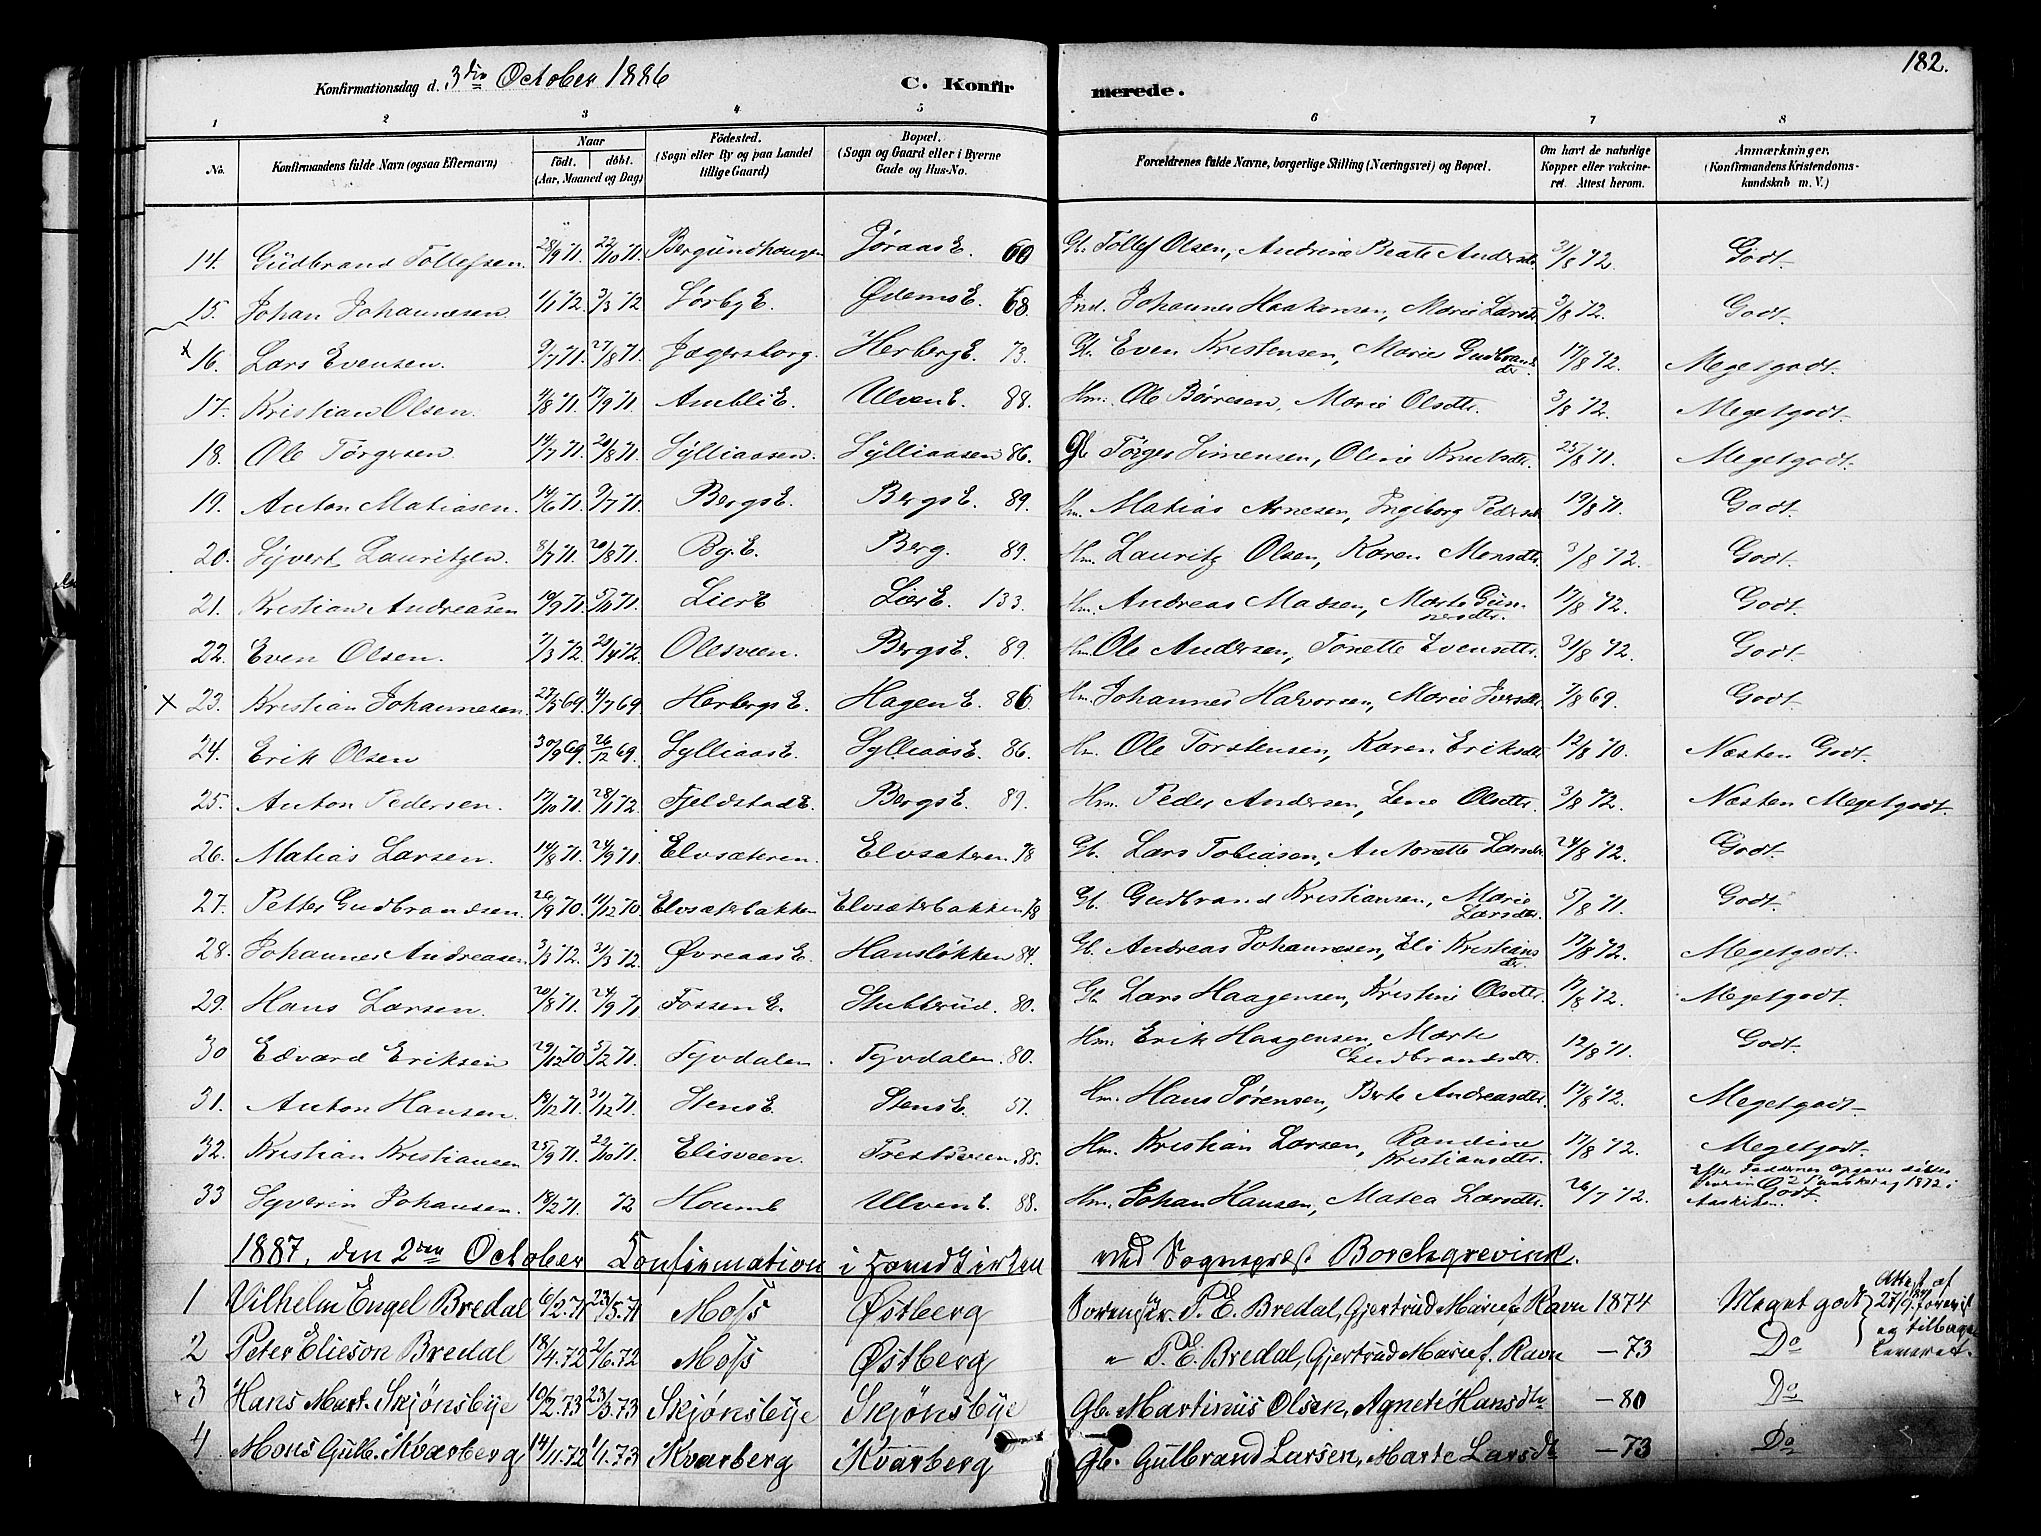 182.
Konfirmationsdag d. 3die October 1886 C. Konfirmerede.
1 2 3 4 5 6 7 8
No. Konfirmandens fulde Navn (ogsaa Efternavn) Naar födt. döbt. (Aar, Maaned og Dag) Födested. (Sogn eller By og paa Landet tillige Gaard) Bopæl. (Sogn og Gaard eller i Byerne Gade og Hus-No. Forældrenes fulde Navne, borgerlige Stilling (Næringsvei) og Bopæl. Om havt de naturlige Kopper eller vakcineret. Attest herom. Anmærkninger, (Konfirmandens Kristendomskundskab m. V.)
14. Gudbrand Tollefsen. 28/9 71. 22/10 71. Bergundhaugen Jøraas E. 60 Gb. Tollef Olsen, Andrine Beate Andersdtr. 3/8 72. Godt.
15. Johan Johannesen. 1/1 72 3/3 72 Sørby E. Ødems E. 68. Ind. Johannes Haakonsen, Marie Larsdtr. 3/8 72. Godt.
x 16. Lars Evensen. 9/7 71. 27/8 71. Jægersborg. Herberg E. 73. Gb. Even Kristensen, Marie Gudbrandsdtr. 17/8 72. Megetgodt.
17. Kristian Olsen. 4/8 71. 17/9 71. Ambli E. Ulven E. 88. Hm. Ole Børresen, Marie Olsdtr. 3/8 72. Megetgodt.
18. Ole Törgersen. 14/7 71. 20/8 71. Sylliaasen. Sylliaasen 86. Gb Törger Simensen, Oline Knutsdtr. 25/8 71. Megetgodt.
19. Anton Matiasen. 14/6 71. 9/7 71. Bergs E. Bergs E. 89. Hm. Matias Arnesen, Ingeborg Pedersdtr. 19/8 71. Godt.
20. Syvert Lauritzen. 8/7 71. 20/8 71. By. E. Berg. 89. Hm. Lauritz Olsen, Karen Monsdtr. 3/8 72. Godt.
21. Kristian Andreasen 19/9 71. 5/11 71. Lier E Lier E. 133. Hm. Andreas Madsen, Marte Gunnersdtr. 17/8 72. Godt.
22. Even Olsen. 7/3 72. 21/4 72. Olesveen. Bergs E. 89. Hm. Ole Andersen, Tonette Evensdtr. 31/8 72. Godt.
x 23. Kristian Johannesen. 27/5 69. 4/7 69 Herbergs E. Hagen E. 86. Hm. Johannes Halvorsen, Marie Iversdtr. 7/8 69. Godt.
24. Erik Olsen 30/9 69. 26/12 69. Sylliaas E. Sylliaas E. 86. Hm. Ole Torstensen, Karen Eriksdtr. 12/8 70. Næsten Godt.
25. Anton Pedersen. 17/10 71. 28/1 72. Fjeldstad E. Bergs E. 89. Hm. Peder Andersen, Lene Olsdtr. 3/8 72. Næsten Megetgodt.
26. Matias Larsen. 14/8 71. 24/9 71. Elvsæteren. Elvsæteren 78 Gb. Lars Tobiasen, Antonette Larsdtr 24/8 72. Godt.
27. Petter Gudbrandsen. 26/9 70. 11/12 70. Elvsæterbakken Elvsæterbakken 78 Gb. Gudbrand Kristiansen, Marie Larsdtr. 5/8 71. Godt.
28. Johannes Andreasen. 3/3 72. 31/3 72. Øvreaas E. Hansløkken 84. Gb. Andreas Johannesen, Eli Kristiansdtr. 17/8 72. Megetgodt.
29. Hans Larsen. 20/8 71. 24/9 71 Fossen E. Stubberud. 80. Gb. Lars Haagensen, Kristine Olsdtr. 17/8 72. Megetgodt.
30 Edvard Eriksen 29/12 70 5/2 71. Tyvdalen. Tyvdalen. 80. Hm. Erik Haagensen, Marte Gudbrandsdtr. 12/8 71. Godt.
31. Anton Hansen. 18/12 71. 31/12 71. Stens E. Stens E. 57. Hm. Hans Sørensen, Berte Andreasdtr. 17/8 72. Megetgodt.
32. Kristian Kristiansen 25/9 71. 22/10 71. Elisveen. 85. Hm. Kristian Larsen, Randine Kristiansdtr. 17/8 72. Megetgodt.
33 Syverin Johansen. 18/12 71. 72 Houmb Ulven E. 88. Hm. Johan Hansen, Matea Larsdtr. 26/7 72. Godt.
1887, den 2den October Confirmation i Hovedkirken ved Sognepræst Borchgrevink.
1 Vilhelm Engel Bredal 6/2.71 23/5.71 Moss Østberg Sorenskr. P. E. Bredal, Gjertrud Marie f. Ravn 1874 Meget godt Attest af 27/9.87 forevist og tilbageleveret.
2 Peter Elieson Bredal 18/4.72 2/6.72 Moss Østberg " P. E. Bredal, Gjertrud Marie f. Ravn – 73 Do
3 Hans Mart. Skjønsbye 10/2.73 23/3.73 Skjønsbye Skjønsbye Gb. Martinus Olsen, Agnete Hansdtr – 80 Do
4 Mons Gulb. Kvarberg 14/11.72 1/1.73 Kvarberg Kvarberg Gb. Gulbrand Larsen, Marte Larsdtr – 73 Do